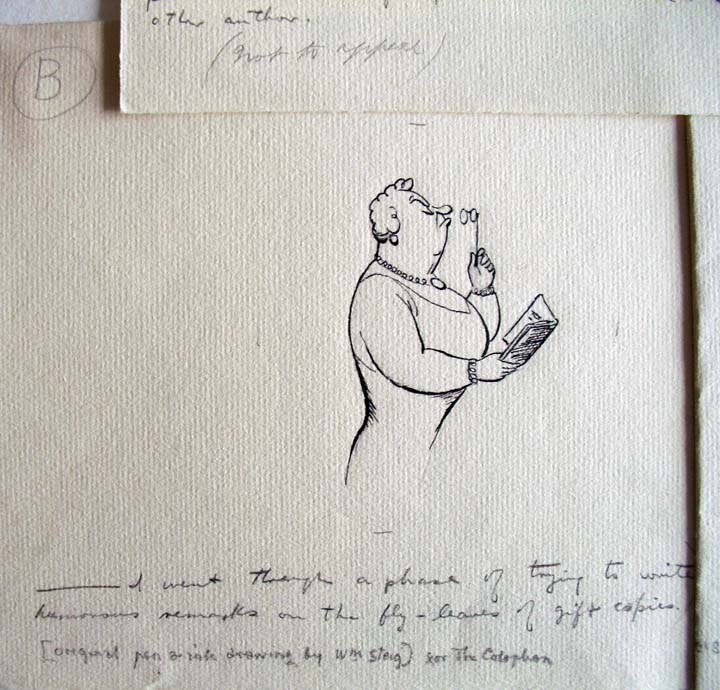 other author.
(not to appear)
B
I went through a phase of trying to write
humorous remarks on the fly-leaves of gift copies.
[original pen & ink drawing by Wm Steig] for The Colophon